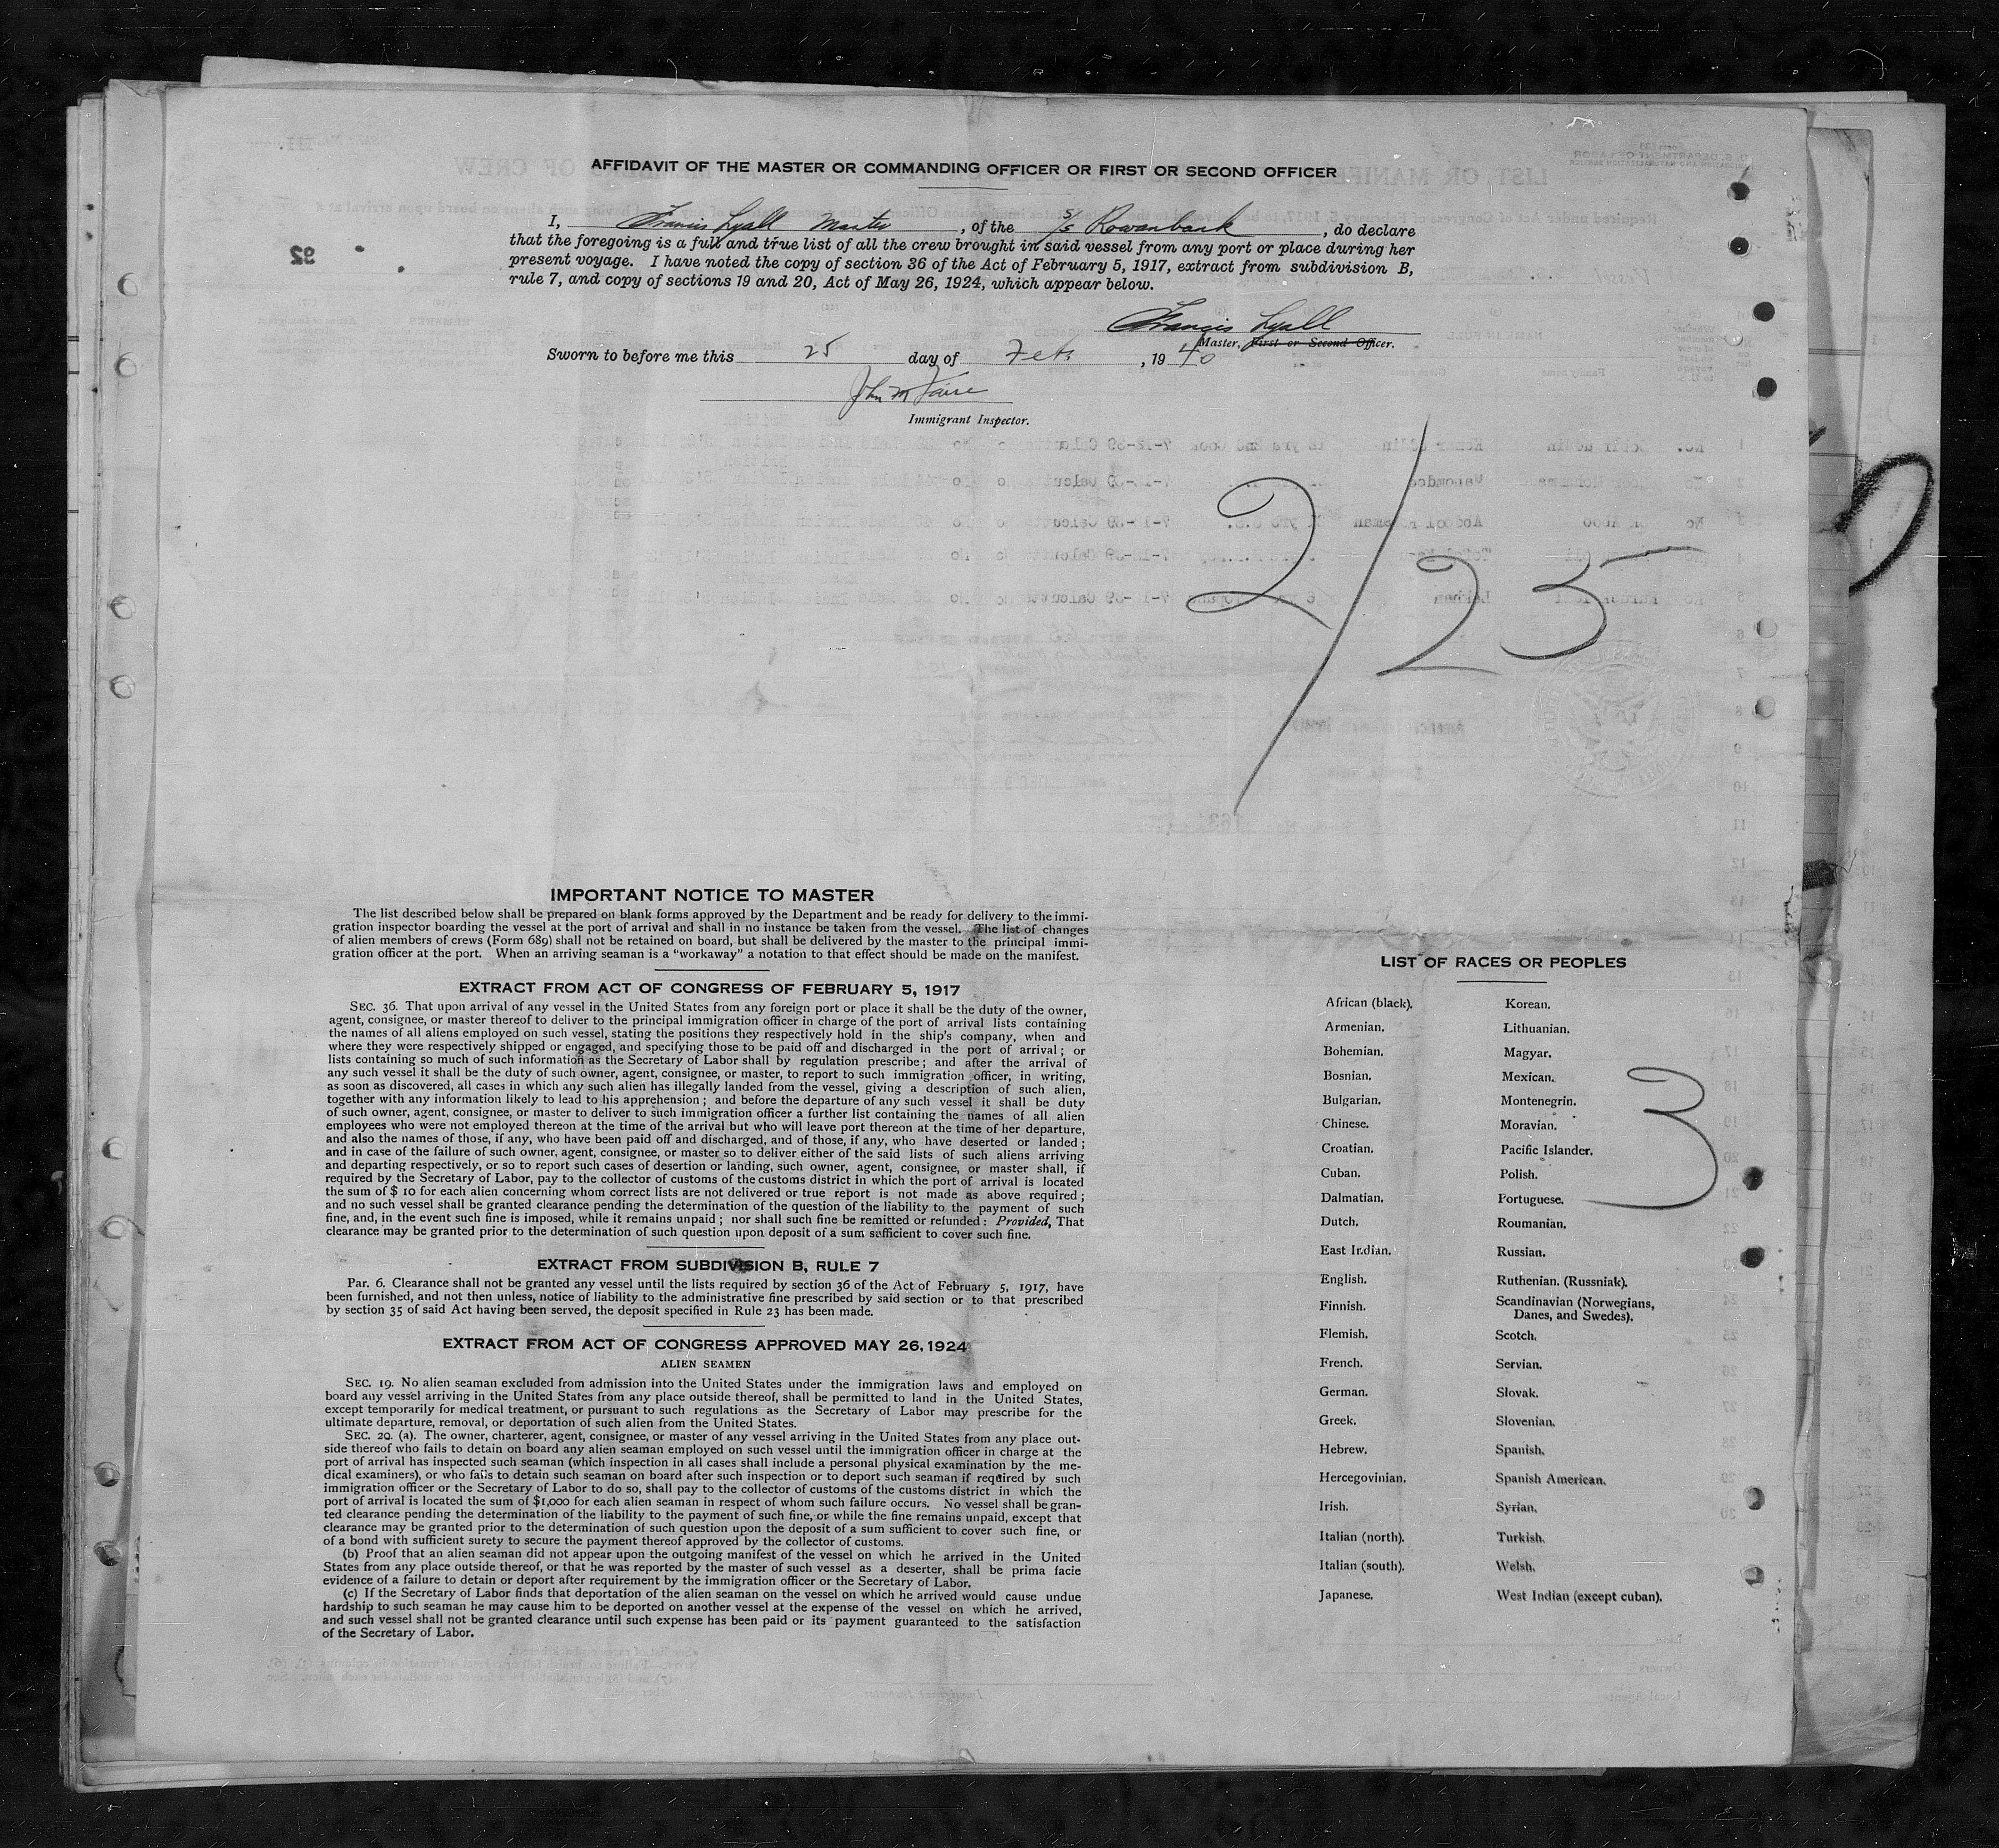 AFFIDAVIT OF THE MASTER OR COMMANDING OFFICER OR FIRST OR SECOND OFFICER
I, Francis Lyall Master, of the S/S Rowanbank, do declare
that the foregoing is a full and true list of all the crew brought in said vessel from any port or place during her
present voyage. I have noted the copy of section 36 of the Act of February 5, 1917, extract from subdivision B,
rule 7, and copy of sections 19 and 20, Act of May 26, 1924, which appear below.
Francis Lyall
Master, First or Second Officer.
Sworn to before me this 25 day of Feb, 1940
John M
Immigrant Inspector.
2/25
IMPORTANT NOTICE TO MASTER
The list described below shall be prepared on blank forms approved by the Department and be ready for delivery to the immi-
gration inspector boarding the vessel at the port of arrival and shall in no instance be taken from the vessel. The list of changes
of alien members of crews (Form 689) shall not be retained on board, but shall be delivered by the master to the principal immi-
gration officer at the port. When an arriving seaman is a "workaway" a notation to that effect should be made on the manifest.
EXTRACT FROM ACT OF CONGRESS OF FEBRUARY 5, 1917
SEC. 36. That upon arrival of any vessel in the United States from any foreign port or place it shall be the duty of the owner,
agent, consignee, or master thereof to deliver to the principal immigration officer in charge of the port of arrival lists containing
the names of all aliens employed on such vessel, stating the positions they respectively hold in the ship's company, when and
where they were respectively shipped or engaged, and specifying those to be paid off and discharged in the port of arrival; or
lists containing so much of such information as the Secretary of Labor shall by regulation prescribe; and after the arrival of
any such vessel it shall be the duty of such owner, agent, consignee, or master, to report to such immigration officer, in writing,
as soon as discovered, all cases in which any such alien has illegally landed from the vessel, giving a description of such alien,
together with any information likely to lead to his apprehension; and before the departure of any such vessel it shall be duty
of such owner, agent, consignee, or master to deliver to such immigration officer a further list containing the names of all alien
employees who were not employed thereon at the time of the arrival but who will leave port thereon at the time of her departure,
and also the names of those, if any, who have been paid off and discharged, and of those, if any, who have deserted or landed;
and in case of the failure of such owner, agent, consignee, or master so to deliver either of the said lists of such aliens arriving
and departing respectively, or so to report such cases of desertion or landing, such owner, agent, consignee, or master shall, if
required by the Secretary of Labor, pay to the collector of customs of the customs district in which the port of arrival is located
the sum of $ 10 for each alien concerning whom correct lists are not delivered or true report is not made as above required;
and no such vessel shall be granted clearance pending the determination of the question of the liability to the payment of such
fine, and, in the event such fine is imposed, while it remains unpaid; nor shall such fine be remitted or refunded: Provided, That
clearance may be granted prior to the determination of such question upon deposit of a sum sufficient to cover such fine.
EXTRACT FROM SUBDIVISION B, RULE 7
Par. 6. Clearance shall not be granted any vessel until the lists required by section 36 of the Act of February 5, 1917, have
been furnished, and not then unless, notice of liability to the administrative fine prescribed by said section or to that prescribed
by section 35 of said Act having been served, the deposit specified in Rule 23 has been made.
EXTRACT FROM ACT OF CONGRESS APPROVED MAY 26, 1924
ALIEN SEAMEN
SEC. 19. No alien seaman excluded from admission into the United States under the immigration laws and employed on
board any vessel arriving in the United States from any place outside thereof, shall be permitted to land in the United States,
except temporarily for medical treatment, or pursuant to such regulations as the Secretary of Labor may prescribe for the
ultimate departure, removal, or deportation of such alien from the United States.
SEC. 20. (a). The owner, charterer, agent, consignee, or master of any vessel arriving in the United States from any place out-
side thereof who fails to detain on board any alien seaman employed on such vessel until the immigration officer in charge at the
port of arrival has inspected such seaman (which inspection in all cases shall include a personal physical examination by the me-
dical examiners), or who fails to detain such seaman on board after such inspection or to deport such seaman if required by such
immigration officer or the Secretary of Labor to do so, shall pay to the collector of customs of the customs district in which the
port of arrival is located the sum of $1,000 for each alien seaman in respect of whom such failure occurs. No vessel shall be gran-
ted clearance pending the determination of the liability to the payment of such fine, or while the fine remains unpaid, except that
clearance may be granted prior to the determination of such question upon the deposit of a sum sufficient to cover such fine, or
of a bond with sufficient surety to secure the payment thereof approved by the collector of customs.
(b) Proof that an alien seaman did not appear upon the outgoing manifest of the vessel on which he arrived in the United
States from any place outside thereof, or that he was reported by the master of such vessel as a deserter, shall be prima facie
evidence of a failure to detain or deport after requirement by the immigration officer or the Secretary of Labor.
(c) If the Secretary of Labor finds that deportation of the alien seaman on the vessel on which he arrived would cause undue
hardship to such seaman he may cause him to be deported on another vessel at the expense of the vessel on which he arrived,
and such vessel shall not be granted clearance until such expense has been paid or its payment guaranteed to the satisfaction
of the Secretary of Labor.
LIST OF RACES OR PEOPLES
African (black). Korean.
Armenian. Lithuanian.
Bohemian. Magyar.
Bosnian. Mexican.
Bulgarian. Montenegrin.
Chinese. Moravian.
Croatian. Pacific Islander.
Cuban. Polish.
Dalmatian. Portuguese.
Dutch. Roumanian.
East Indian. Russian.
English. Ruthenian. (Russniak).
Finnish. Scandinavian (Norwegians,
Danes, and Swedes).
Flemish. Scotch.
French. Servian.
German. Slovak.
Greek. Slovenian.
Hebrew. Spanish.
Hercegovinian. Spanish American.
Irish. Syrian.
Italian (north). Turkish.
Italian (south). Welsh.
Japanese. West Indian (except cuban).
3